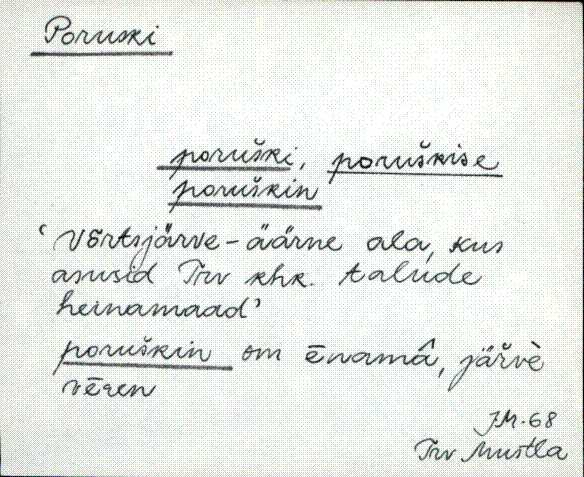 Poruski
poruški, poruškise
poruškin
‛Võrtsjärve-äärne ala, kus
asusid Trv khk. talude
heinamaad’
poruškin om ēnamâ, järv̆è
vēren
JM-68
Trv Mustla